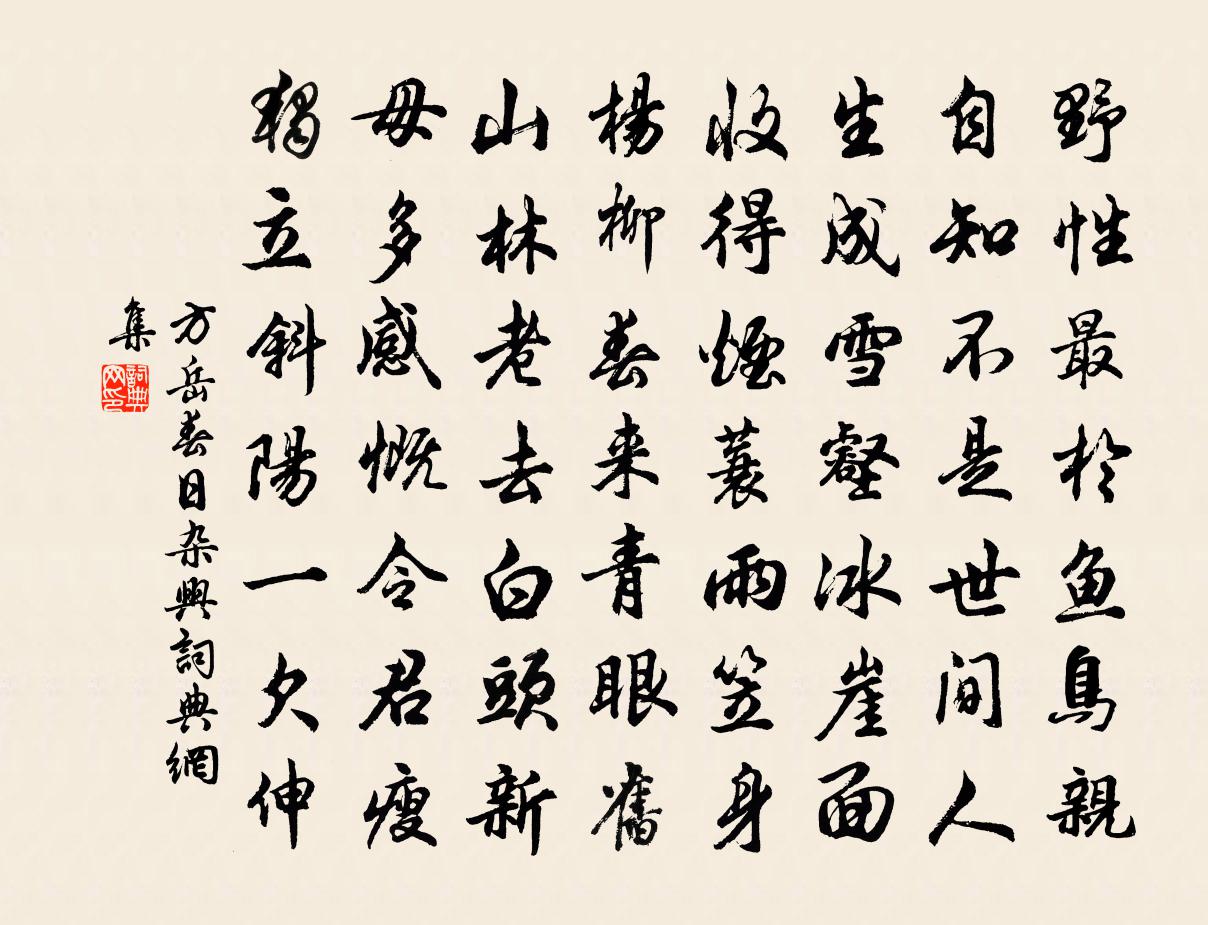 野性最於鱼鳥親
自知不是世間人
生成雪壑冰崖面
收得煙蓑雨笠身
楊柳春来青眼舊
山林老去白頭新
毋多感慨令君瘦
獨立斜陽一欠伸
方岳春日杂興詞典網
集
詞典
网印